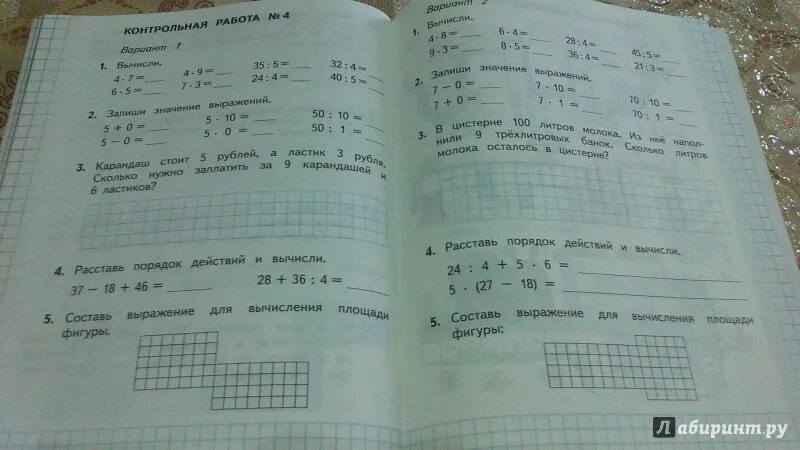 КОНТРОЛЬНАЯ РАБОТА № 4
Вариант 1
1. Вычисли.
4 · 7 = ___ 4 · 9 = ___ 35 : 5 = ___ 32 : 4 = ___
6 · 5 = ___ 7 · 3 = ___ 24 : 4 = ___ 40 : 5 = ___
2. Запиши значение выражений.
5 + 0 = ___ 5 · 10 = ___ 50 : 10 = ___
5 − 0 = ___ 5 · 0 = ___ 50 : 1 = ___
3. Карандаш стоит 5 рублей, а ластик 3 рубля.
Сколько нужно заплатить за 9 карандашей и
6 ластиков?
4. Расставь порядок действий и вычисли.
37 − 18 + 46 = ___ 28 + 36 : 4 = ___
5. Составь выражение для вычисления площади
фигуры.
Вариант 2
1. Вычисли.
4 · 8 = ___ 6 · 4 = ___ 28 : 4 = ___ 45 : 5 = ___
9 · 3 = ___ 8 · 5 = ___ 36 : 4 = ___ 21 : 3 = ___
2. Запиши значение выражений.
7 − 0 = ___ 7 · 10 = ___ 70 : 10 = ___
7 + 0 = ___ 7 · 1 = ___ 70 : 1 = ___
3. В цистерне 100 литров молока. Из неё напол-
нили 9 трёхлитровых банок. Сколько литров
молока осталось в цистерне?
4. Расставь порядок действий и вычисли.
24 : 4 + 5 · 6 = ___
5 · (27 − 18) = ___
5. Составь выражение для вычисления площади
фигуры:
Лабиринт.ру